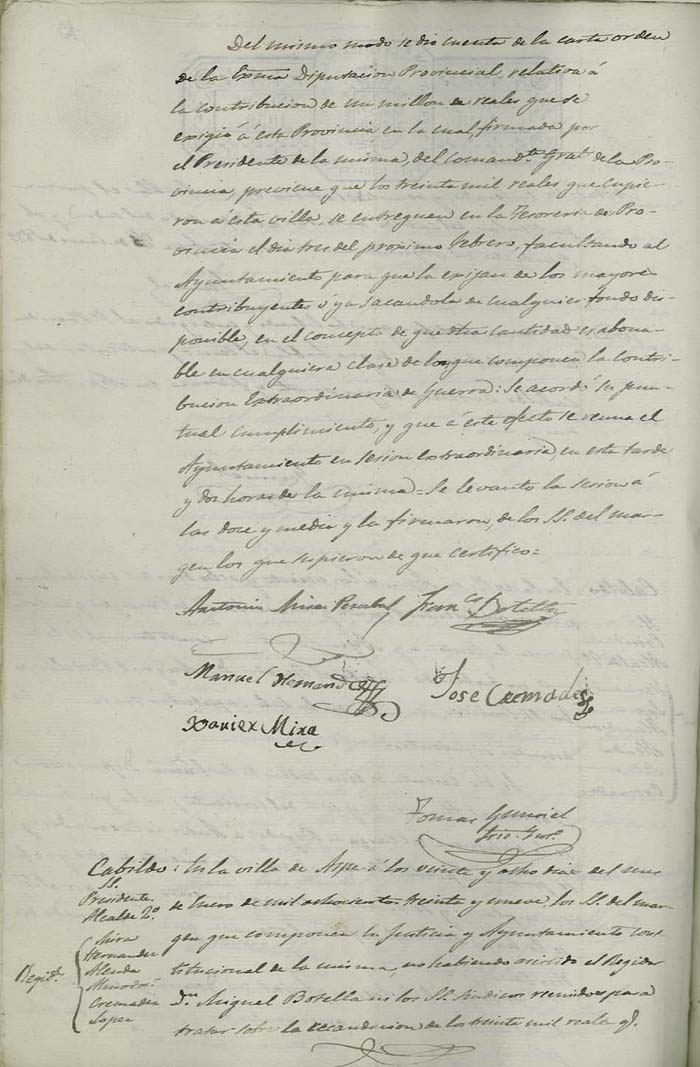 Del mismo modo se dio cuenta de la carta orden
de la Exma Diputacion Provincial, relativa á
la contribucion de un millon de reales que se
exigió á esta Provincia en la cual, firmada por
el Presidente de la misma, del Comandte. Gral. de la Pro-
vincia, previene que los treinta mil reales que cupie-
ron á esta villa, se entreguen en la Tesoreria de Pro-
vincia el dia tres del proximo Febrero, facultando al
Ayuntamiento para que la exijan de los mayores
contribuyentes ó ya sacandola de cualquier fondo dis-
ponible, en el concepto de que dha cantidad es abona-
ble en cualquiera clase de los que componen la contri-
bucion Extraordinaria de Guerra: Se acordó su pun-
tual cumplimiento, y que á este efecto se reuna el
Ayuntamiento en sesion extraordinaria, en esta tarde
y dos horas de la misma = Se levantó la sesion á
las doce y media y la firmaron, de los SS. del mar-
gen los que supieron de que certifico =
Antonio Mira Franco. Botella
Manuel Hernandez Jose Cremades
Xavier Mira
Tomas
Srio.
Cabildo: En la villa de Aspe á los veinte y ocho dias del mes
SS.
Presidente
Alcalde 2º.
de Enero de mil ochocientos treinta y nueve los SS. del mar-
Regids.
Mira
Hernandez
Cremades
Lopez
gen que componen la Justicia y Ayuntamiento cons-
titucional de la misma, no habiendo asistido el Regidor
Dn. Miguel Botella ni los SS. Sindicos reunidos para
tratar sobre la recaudacion de los treinta mil reales q.